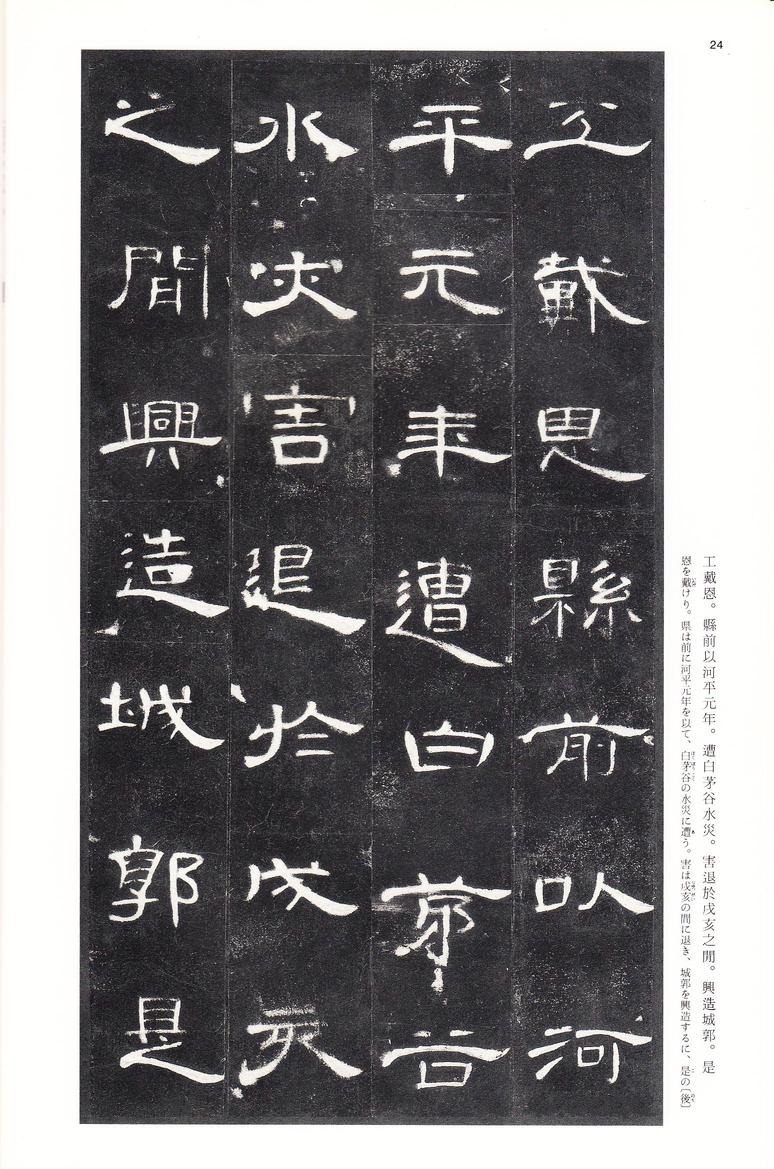 24
工戴恩縣前以河
平元年遭白茅谷
水災害退於戌亥
之間興造城郭是
工戴恩。縣前以河平元年。遭白茅谷水災。害退於戌亥之閒。興造城郭。是
恩を戴けり。県は前に河平元年を以て、白茅谷の水災に遭う。害は戌亥の間に退き、城郭を興造するに、是の〔後〕